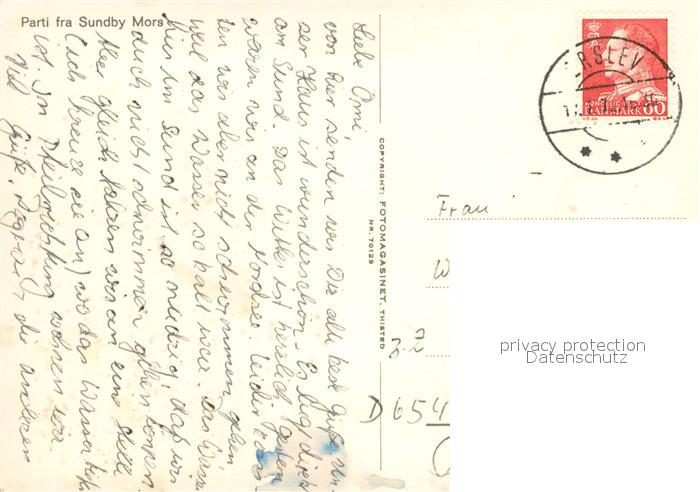 Parti fra Sundby Mors
Liebe Omi,
von hier senden wir Dir alle herzl. Grüße. Un-
ser Haus ist wunderschön. Es liegt direkt
am Sund. Das Wetter ist herrlich. Gestern
waren wir an der Nordsee. Leider konn-
ten wir aber nicht schwimmen gehen
weil das Wasser so kalt war. Das Wasser
hier im Sund ist so niedrig, daß wir
auch nicht schwimmen gehen können.
Aber gleich fahren wir an eine Stelle
(ich kreuze sie an) wo das Wasser tief
ist. In Pfeilrichtung wohnen wir.
Viel Grüße, die anderen
COPYRIGHT: FOTOMAGASINET, THISTED
NR. 70129
ERSLEV
KONGELIG POST
DANMARK 60
Frau
W
z.Z
D 654
privacy protection
Datenschutz